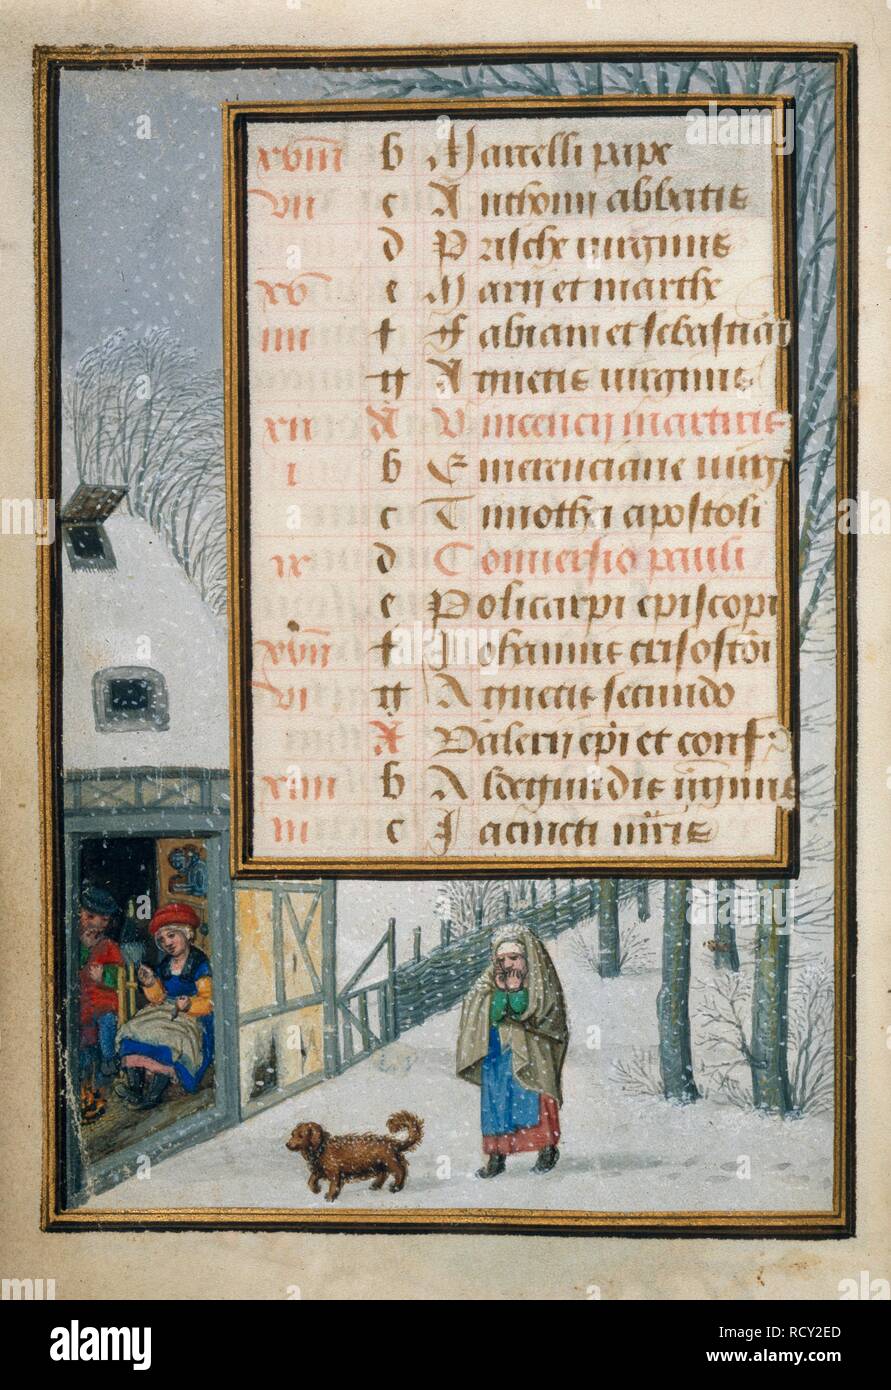 xviii b Marcelli pape
vii c Anthonii abbatis
d Prische virginis
xv e Marii et marthe
iiii f Fabiani et sebastiani
g Agnetis virginis
xii A Vincencii martiris
i b Emerenciane virg
c Timothei apostoli
ix d Conversio pauli
e Policarpi episcopi
xvii f Johannis crisostomi
vi g Agnetis secundo
A Valerii epi et conf
xiiii b Aldegundis virginis
iii c Jacincti mris
alamy
Image ID: RCY2ED
www.alamy.com